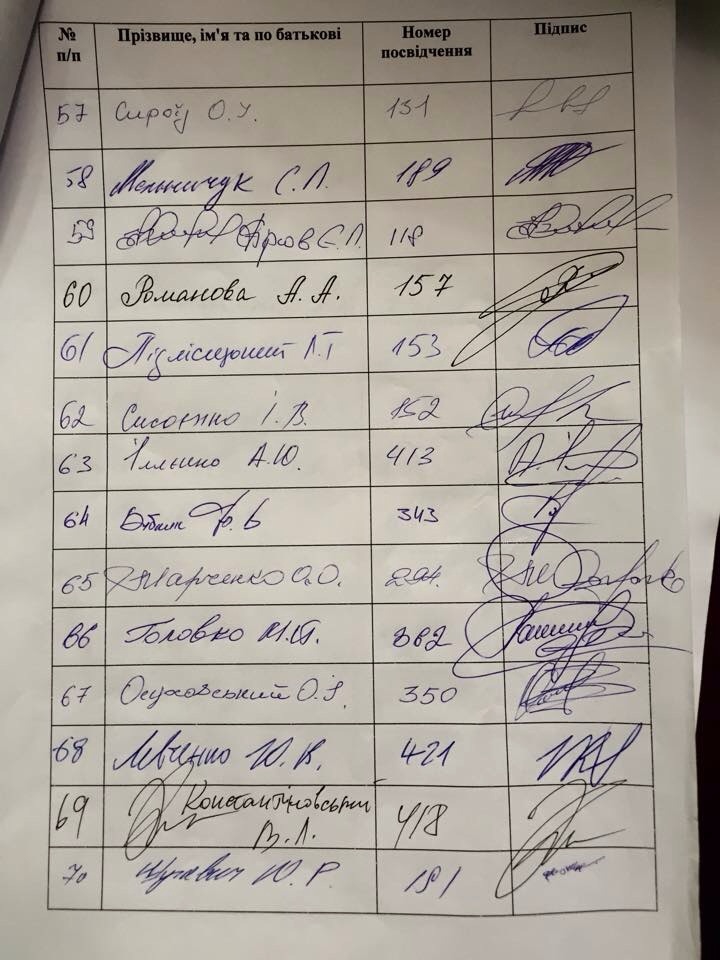 № п/п Прізвище, ім'я та по батькові Номер посвідчення Підпис
57 Сироїд О.І. 131
58 Мельничук С.П. 189
59 118
60 Романова А.А. 157
61 Підлісецький Л.Т 153
62 Сисоєнко І.В. 152
63 Іллєнко А.Ю. 413
64 Бублик Ю.В 343
65 Марченко О.О. 294.
66 Головко М.Й. 382
67 Осуховський О.І. 350
68 Левченко Ю.В. 421
69 Константіновський
В.Л. 418
70 Шухевич Ю.Р. 181